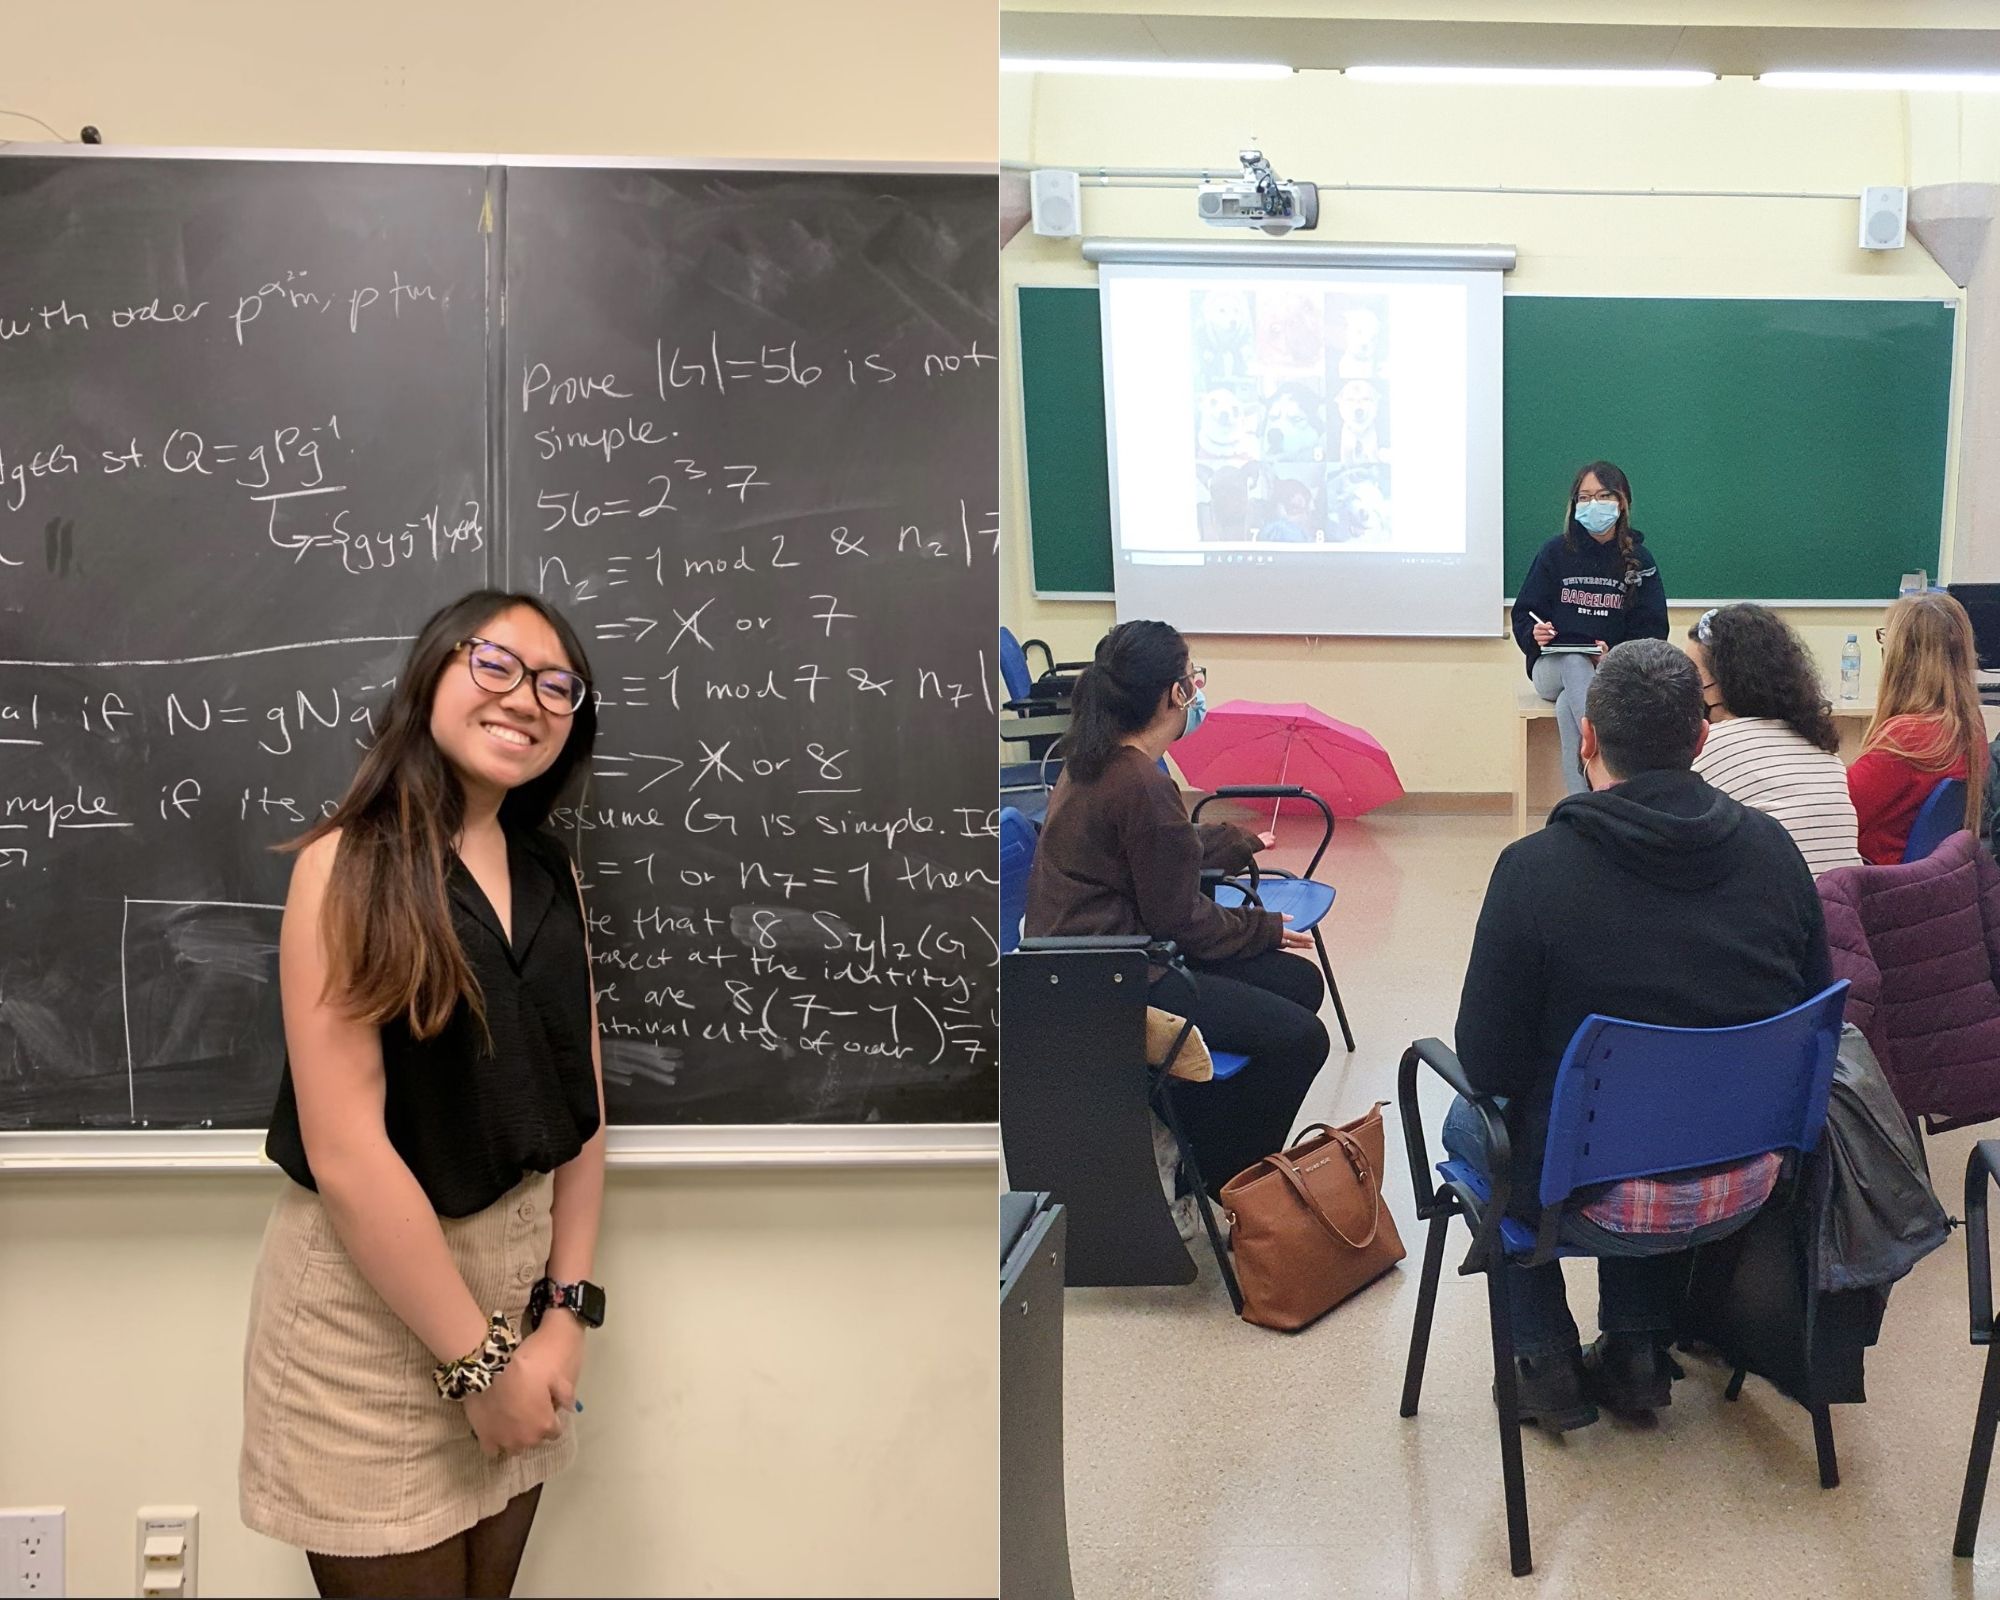 with order p^α m, p∤m.
∃g∈G st. Q=gPg⁻¹.
↳={gyg⁻¹|y∈P}
al if N=gNg⁻¹
mple if its
Prove |G|=56 is not
simple.
56=2³·7
n₂≡1 mod 2 & n₂|7
=> X or 7
≡1 mod 7 & n₇|
=> X or 8
ssume G is simple. If
=1 or n₇=1 then
te that 8 Syl₂(G)
tersect at the identity.
re are 8(7-1)=
ntrivial elts of order 7.
UNIVERSITAT
BARCELONA
EST. 1450
7 8